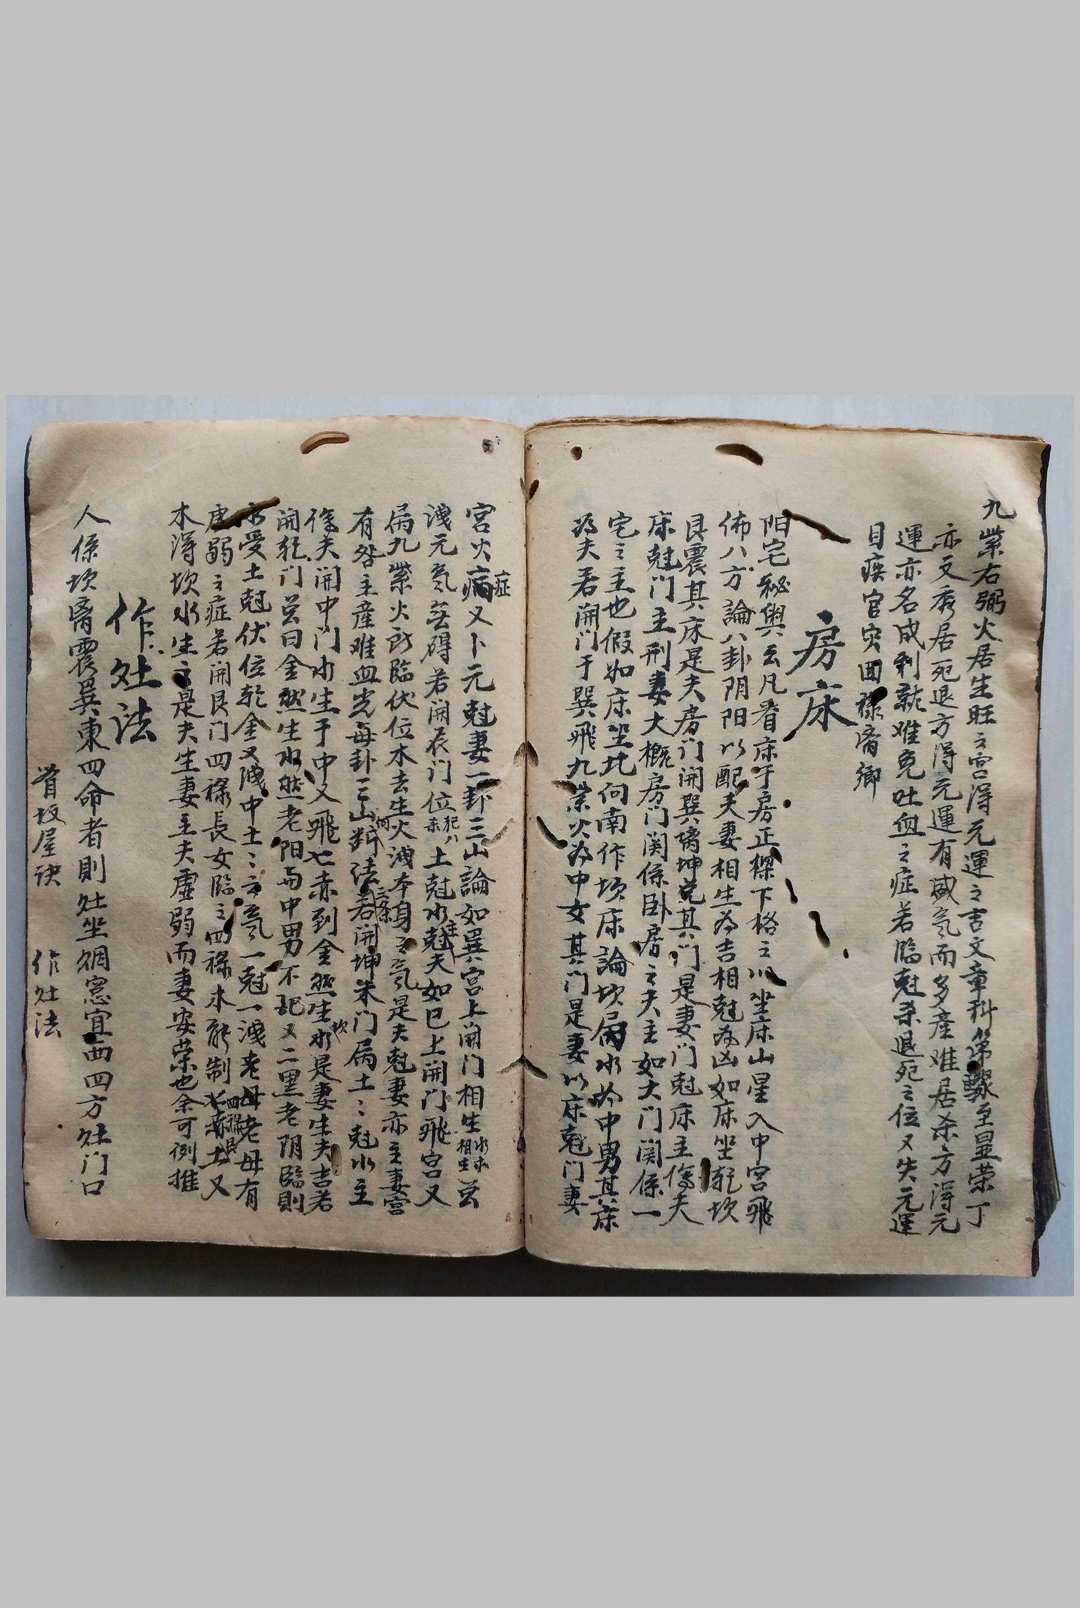 九紫右弼火居生旺之宮得元運之吉文章科第驟至显荣丁
亦文秀居死退方得元運有威亮而多產难居杀方得元
運亦名成利就难免吐血之症若臨尅杀退死之位又失元運
目疾官灾回禄
房床
阳宅秘奥云凡看床于房正樑下格之以坐床山星入中宮飛
佈八方論八卦阴阳以配夫妻相生為吉相尅為凶如床坐乾坎
艮震其床是夫房门開巽离坤兑其门是妻门尅床主傷夫
床尅门主刑妻大概房门関係卧房之夫主如大门関係一
宅之主也假如床坐北向南作坎床論坎局水為中男其床
為夫若開门于巽飛九紫火為中女其门是妻以床尅门妻
宮火症痛又卜元尅妻一卦三山論如巽宮上開门相生水木相生云
洩元氣無碍若開辰门位犯八杀土尅水尅夫如巳上開门飛宮又
局九紫火所臨伏位木去生火洩本身之氣是夫尅妻亦主妻宮
有咎主產难血光每卦三山断法若開坤未门局土土尅水主
傷夫開中门水生于中又飛七赤到金然生坎水是妻生夫吉若
開乾门总曰金然生水然老阳与中男不配又二黑老阴臨則
水受土尅伏位乾金又洩中土之氣一尅一洩老母老母有
虚弱之症若開艮门四禄長女臨之四禄木能制土又
木得坎水生之是夫生妻主夫虚弱而妻安荣也余可例推
作灶法
人係坎离震巽東四命者則灶坐烟窓宜西四方灶门口
首坟屋诀　作灶法